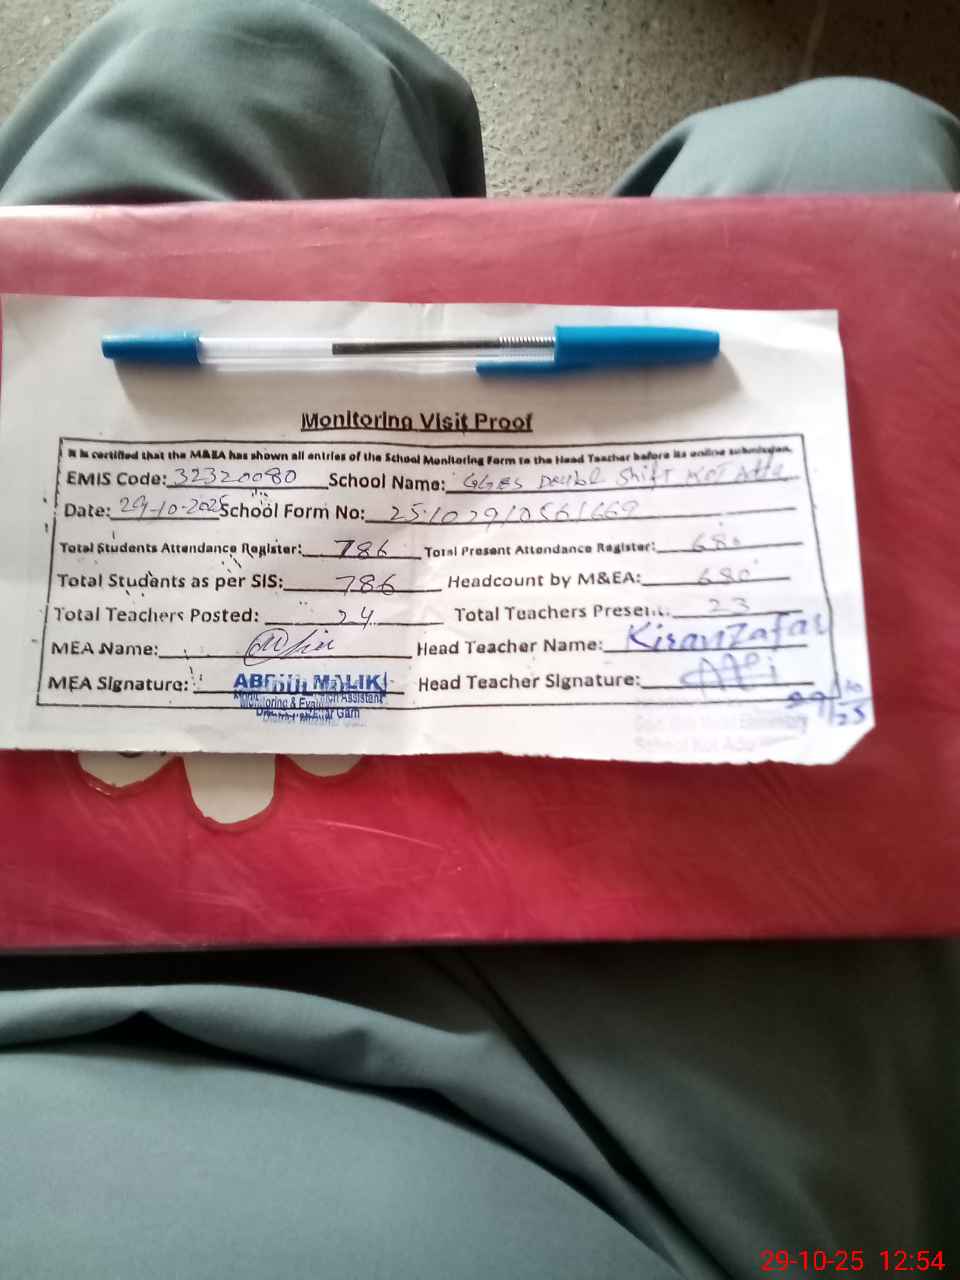 Monitoring Visit Proof
It is certified that the M&EA has shown all entries of the School Monitoring Form to the Head Teacher before its online submission.
EMIS Code: 32320080 School Name: GGES Double Shift Kot Addu
Date: 29-10-2025 School Form No:
Total Students Attendance Register: 786 Total Present Attendance Register: 680
Total Students as per SIS: 786 Headcount by M&EA: 680
Total Teachers Posted: 24 Total Teachers Present: 23
MEA Name: Head Teacher Name: Kiran Zafar
MEA Signature: MALIK Head Teacher Signature:
Monitoring & Evaluation Assistant
29/10/25
School Kot Adu
29-10-25 12:54